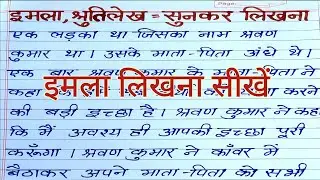 Page:
इमला, श्रुतिलेख = सुनकर लिखना
एक लड़का था जिसका नाम श्रवण
कुमार था। उसके माता-पिता अंधे थे।
एक बार श्रवण कुमार के माता-पिता ने
कहा
इमला लिखना सीखें
की बड़ी इच्छा है। श्रवण कुमार ने कहा
कि मैं अवश्य ही आपकी इच्छा पूरी
करूँगा। श्रवण कुमार ने काँवर में
बैठाकर अपने माता-पिता को सभी